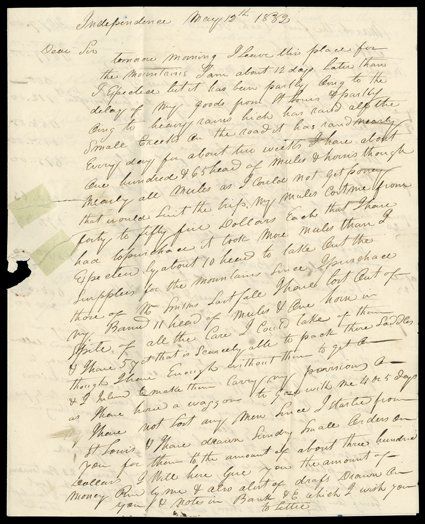 Independence May 12th 1833
Dear Sir
tomorow morning I Leave this place for
the mountains I am about 12 days Later than
I Expected but it has bin partly Ong to the
delay of My goods from St Louis & partly
Ong to heavy rains hich has raisd all the
Small Creeks On the road it has raind nearly
Every day for about two weeks I have about
One hundred & 65 head of Mules & horses though
nearly all Mules as I Could not get poneys
that would Suit the trip. My Mules Cost me from
forty to fifty five Dollars Each that I have
had to purchace it took More mules than I
Expected by about 10 head to take Out the
Supplies for the Mountains Since I purchace
those of Mr Smiths Last fall I have lost Out of
my Band 11 head of Mules & One horse in
Spite of all the Care I Could take of them
& I have 5 yet that is Scarcely able to pack there Saddles
though I have Enough without them to get a
& I Intend to make them Carry my provisions a
as I have hired a waggone to go with me 4 or 5 days
I have not lost any Men Since I started from
St Louis & I have drawn Sundry Small Orders on
you for them to the amount of about three hundred
Dollars I Will here Give you the amount of
Money by me & also a list of drafs Drawn On
you & Note in Bank & C which I wish you
to Settle